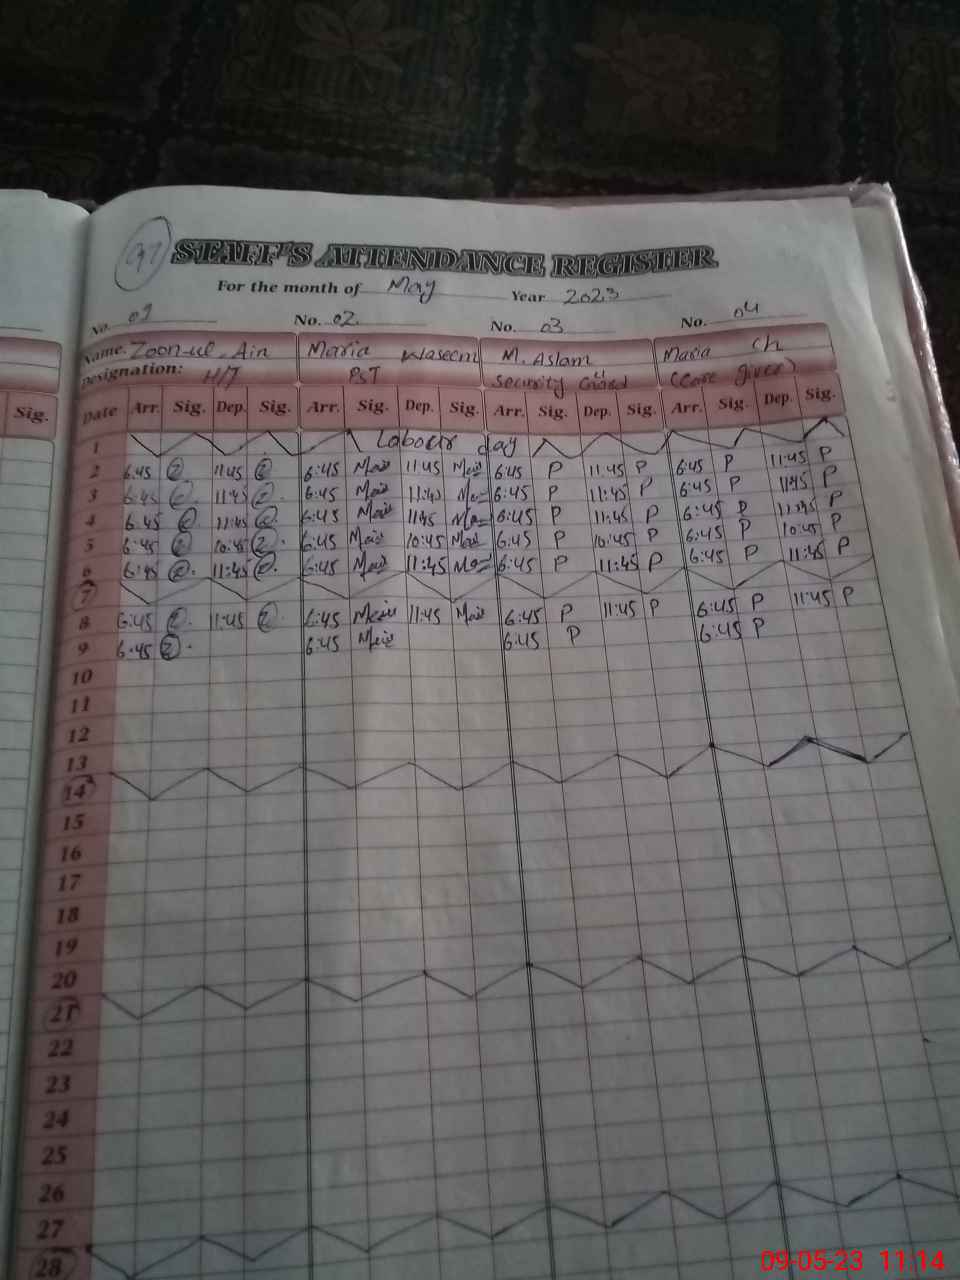 97
STAFF'S ATTENDANCE REGISTER
For the month of May Year 2023
No. 01 No. 02 No. 03 No. 04
Name. Zoon-ul-Ain Maria Waseem M. Aslam Maria Ch
Designation: H/T PST Security Guard (Care giver)
Sig. Date Arr. Sig. Dep. Sig. Arr. Sig. Dep. Sig. Arr. Sig. Dep. Sig. Arr. Sig. Dep. Sig.
1 Labour day
2 6:45 11:45 6:45 11:45 6:45 P 11:45 P 6:45 P 11:45 P
3 6:45 11:45 6:45 11:45 6:45 P 11:45 P 6:45 P 11:45 P
4 6:45 11:45 6:45 11:45 6:45 P 11:45 P 6:45 P 11:45 P
5 6:45 10:45 6:45 10:45 6:45 P 10:45 P 6:45 P 10:45 P
6 6:45 11:45 6:45 11:45 6:45 P 11:45 P 6:45 P 11:45 P
7
8 6:45 11:45 6:45 11:45 6:45 P 11:45 P 6:45 P 11:45 P
9 6:45 6:45 6:45 P 6:45 P
10
11
12
13
14
15
16
17
18
19
20
21
22
23
24
25
26
27
28
09-05-23 11:14